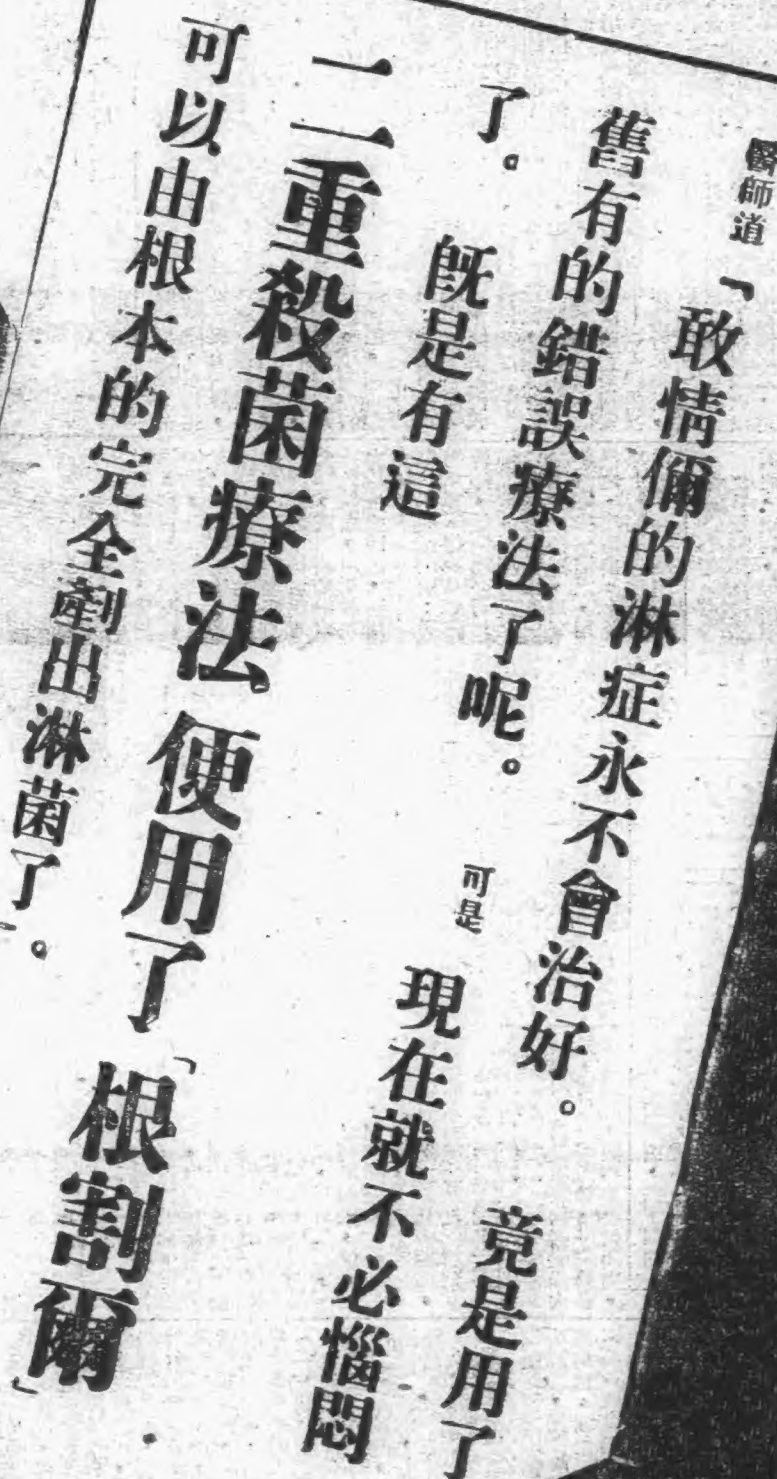 醫師道「敢情儞的淋症永不會治好。竟是用了
舊有的錯誤療法了呢。可是現在就不必惱悶
了。既是有這
二重殺菌療法便用了「根割爾」
可以由根本的完全剷出淋菌了」。